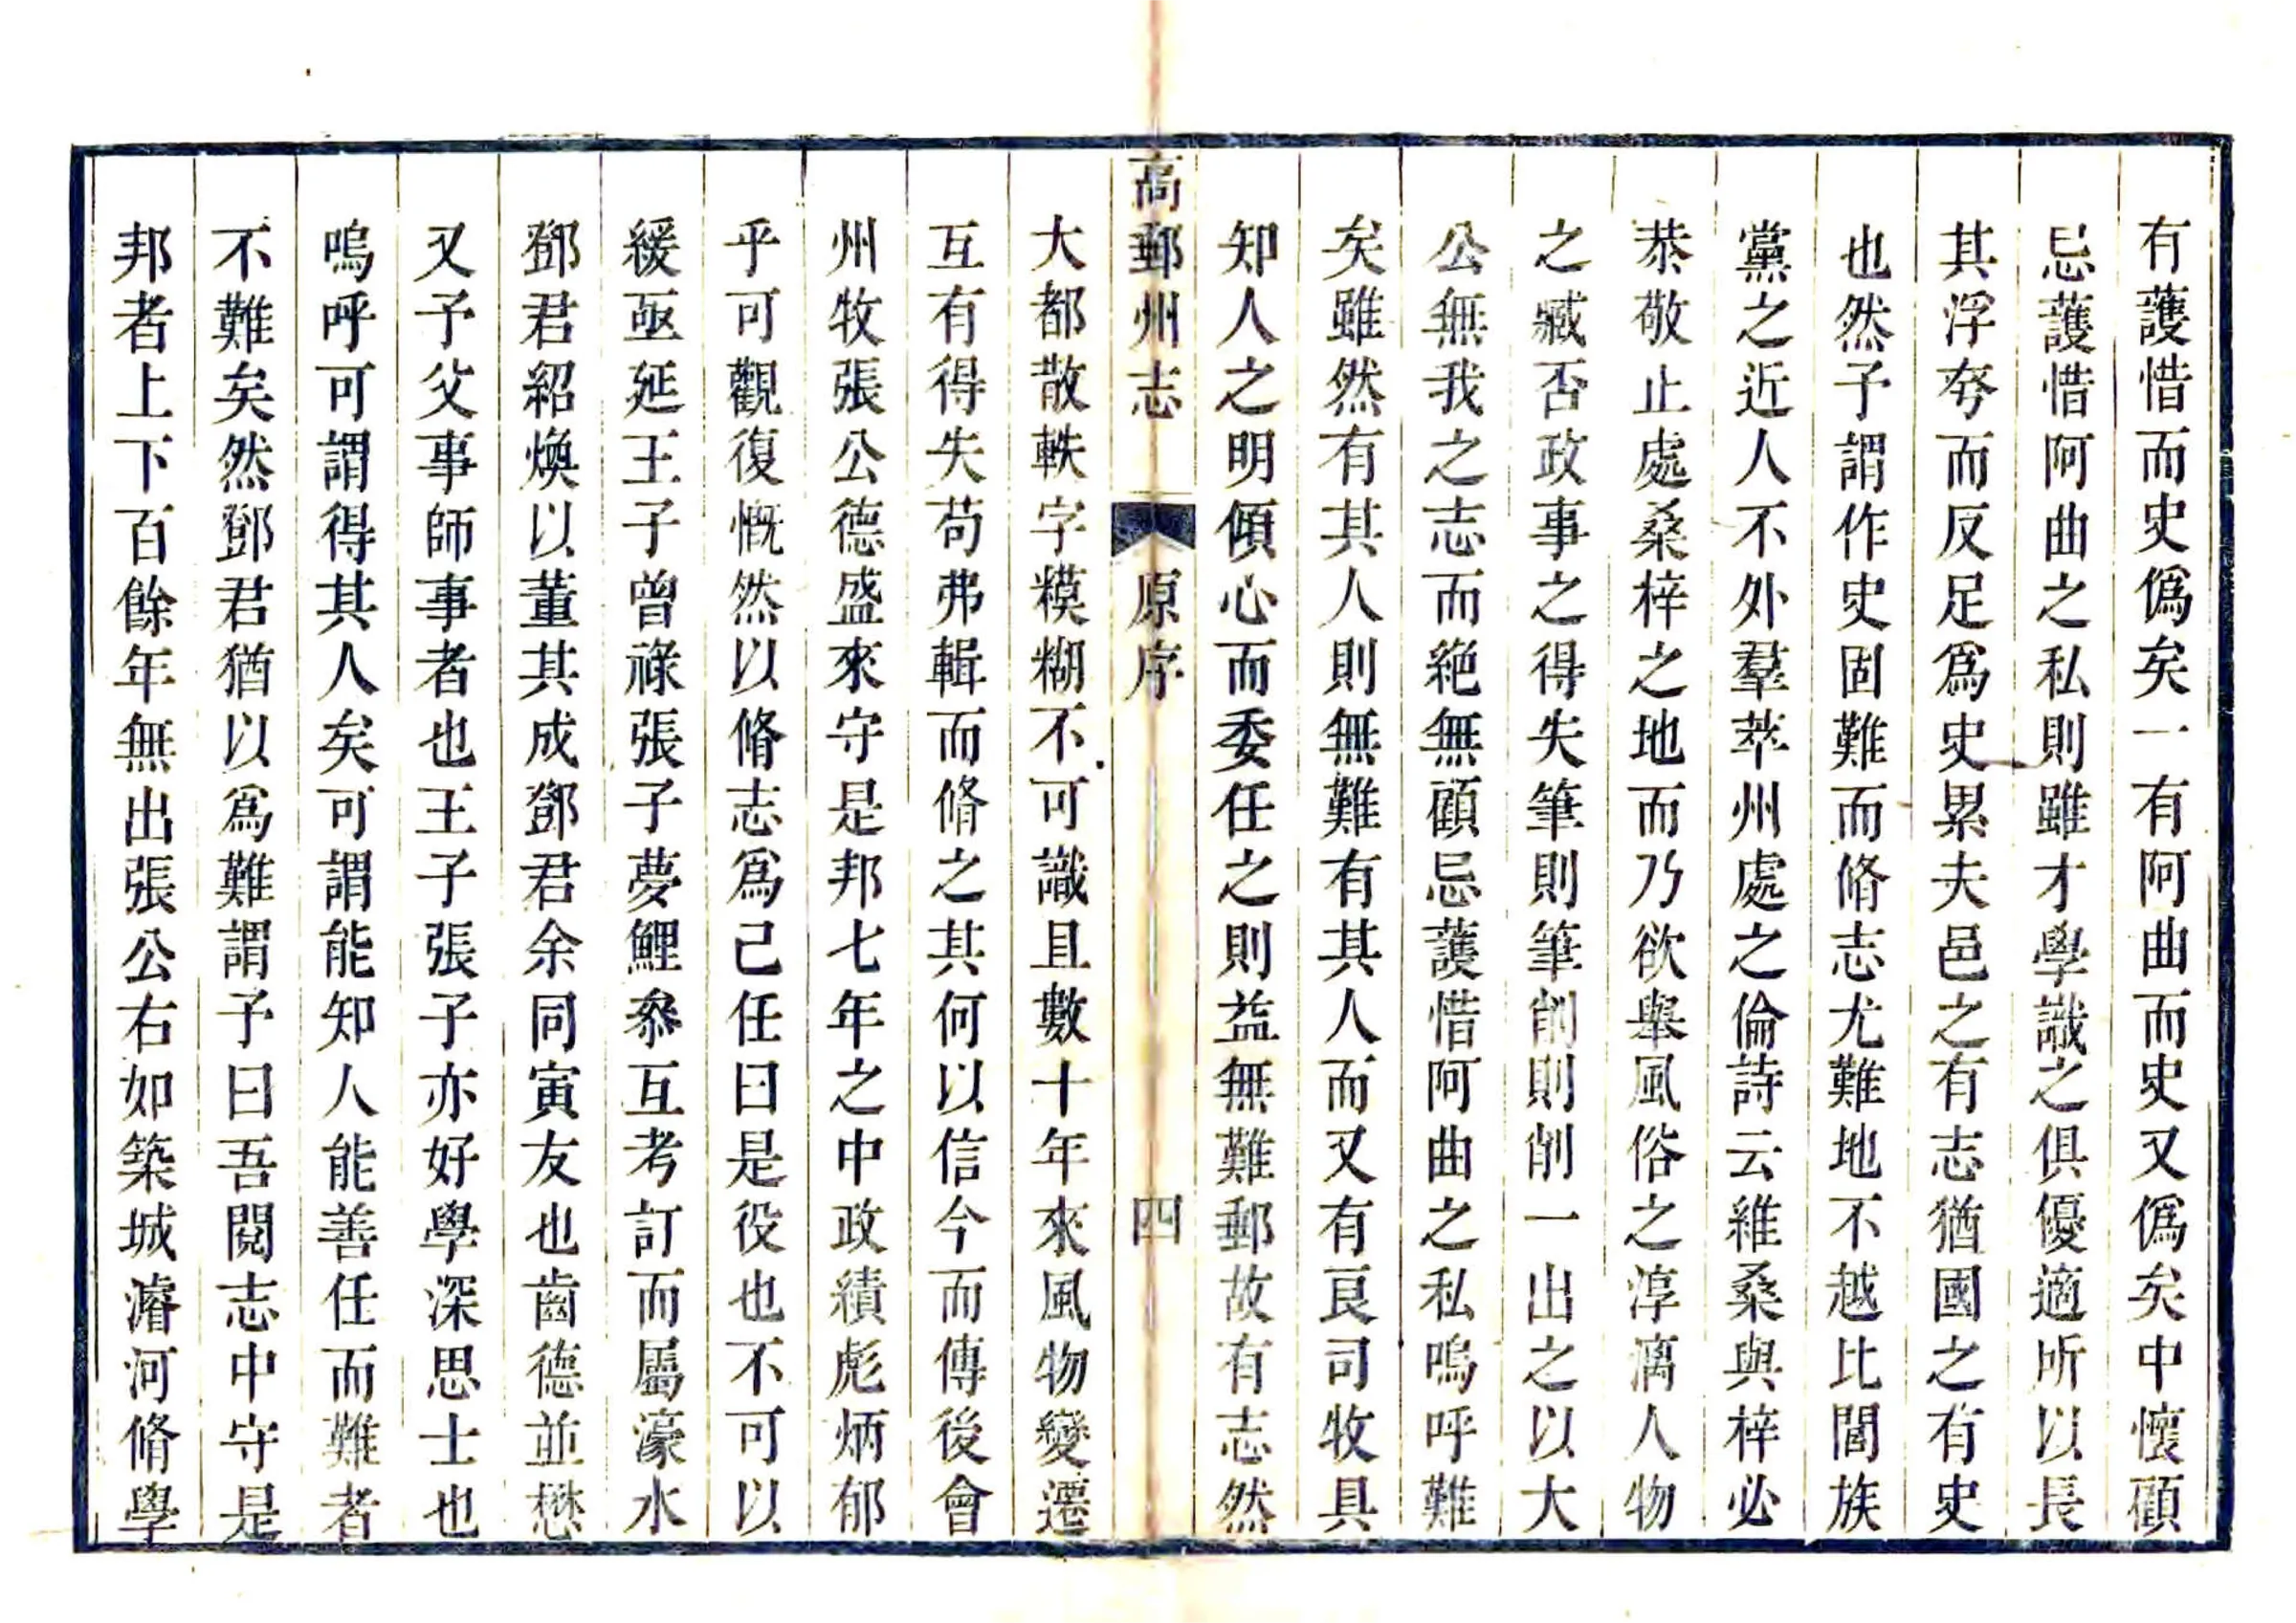 有護惜而史僞矣一有阿曲而史又僞矣中懷顧
忌護惜阿曲之私則雖才學識之俱優適所以長
其浮夸而反足爲史累夫邑之有志猶國之有史
也然予謂作史固難而脩志尤難地不越比閭族
黨之近人不外羣萃州處之倫詩云維桑與梓必
恭敬止處桑梓之地而乃欲舉風俗之淳漓人物
之臧否政事之得失筆則筆削則削一出之以大
公無我之志而絕無顧忌護惜阿曲之私嗚呼難
矣雖然有其人則無難有其人而又有良司牧具
知人之明傾心而委任之則益無難郵故有志然
高郵州志
原序
四
大都散軼字糢糊不可識且數十年來風物變遷
互有得失苟弗輯而脩之其何以信今而傳後會
州牧張公德盛來守是邦七年之中政績彪炳郁
乎可觀復慨然以脩志爲己任曰是役也不可以
緩亟延王子曾祿張子夢鯉叅互考訂而屬濠水
鄧君紹煥以董其成鄧君余同寅友也齒德並懋
又予父事師事者也王子張子亦好學深思士也
嗚呼可謂得其人矣可謂能知人能善任而難者
不難矣然鄧君猶以爲難謂予曰吾閱志中守是
邦者上下百餘年無出張公右如築城濬河脩學